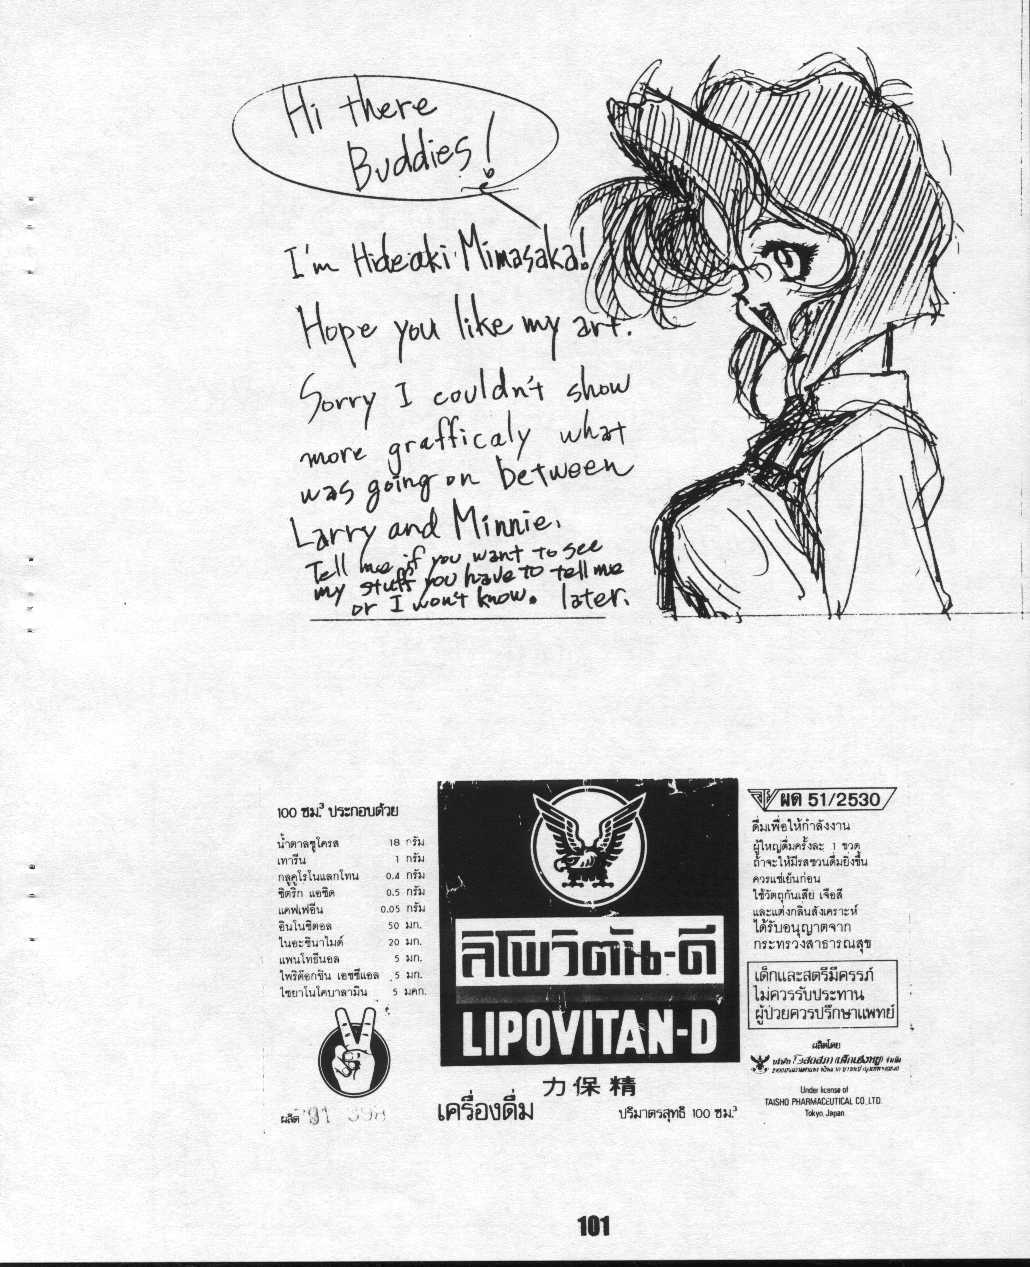 Hi there
Buddies!
I'm Hideaki Mimasaka!
Hope you like my art.
Sorry I couldn't show
more grafficaly what
was going on between
Larry and Minnie.
Tell me if you want to see
my stuff you have to tell me
or I won't know. later.
100 ซม.³ ประกอบด้วย
น้ำตาลซูโครส 18 กรัม
เทารีน 1 กรัม
กลูคูโรโนแลกโทน 0.4 กรัม
ซิตริก แอซิด 0.5 กรัม
แคฟเฟอีน 0.05 กรัม
อินโนซิตอล 50 มก.
ไนอะซินาไมด์ 20 มก.
แพนโทธีนอล 5 มก.
ไพริด๊อกซิน เอชซีแอล 5 มก.
ไซยาโนโคบาลามิน 5 มคก.
ผลิต
ลิโพวิตัน-ดี
LIPOVITAN-D
力保精
เครื่องดื่ม ปริมาตรสุทธิ 100 ซม.³
ผด 51/2530
ดื่มเพื่อให้กำลังงาน
ผู้ใหญ่ดื่มครั้งละ 1 ขวด
ถ้าจะให้มีรสชวนดื่มยิ่งขึ้น
ควรแช่เย็นก่อน
ใช้วัตถุกันเสีย เจือสี
และแต่งกลิ่นสังเคราะห์
ได้รับอนุญาตจาก
กระทรวงสาธารณสุข
เด็กและสตรีมีครรภ์
ไม่ควรรับประทาน
ผู้ป่วยควรปรึกษาแพทย์
ผลิตโดย
บริษัท โอสถสภา (เต็กเฮงหยู) จำกัด
Under license of
TAISHO PHARMACEUTICAL CO.,LTD.
Tokyo, Japan
101